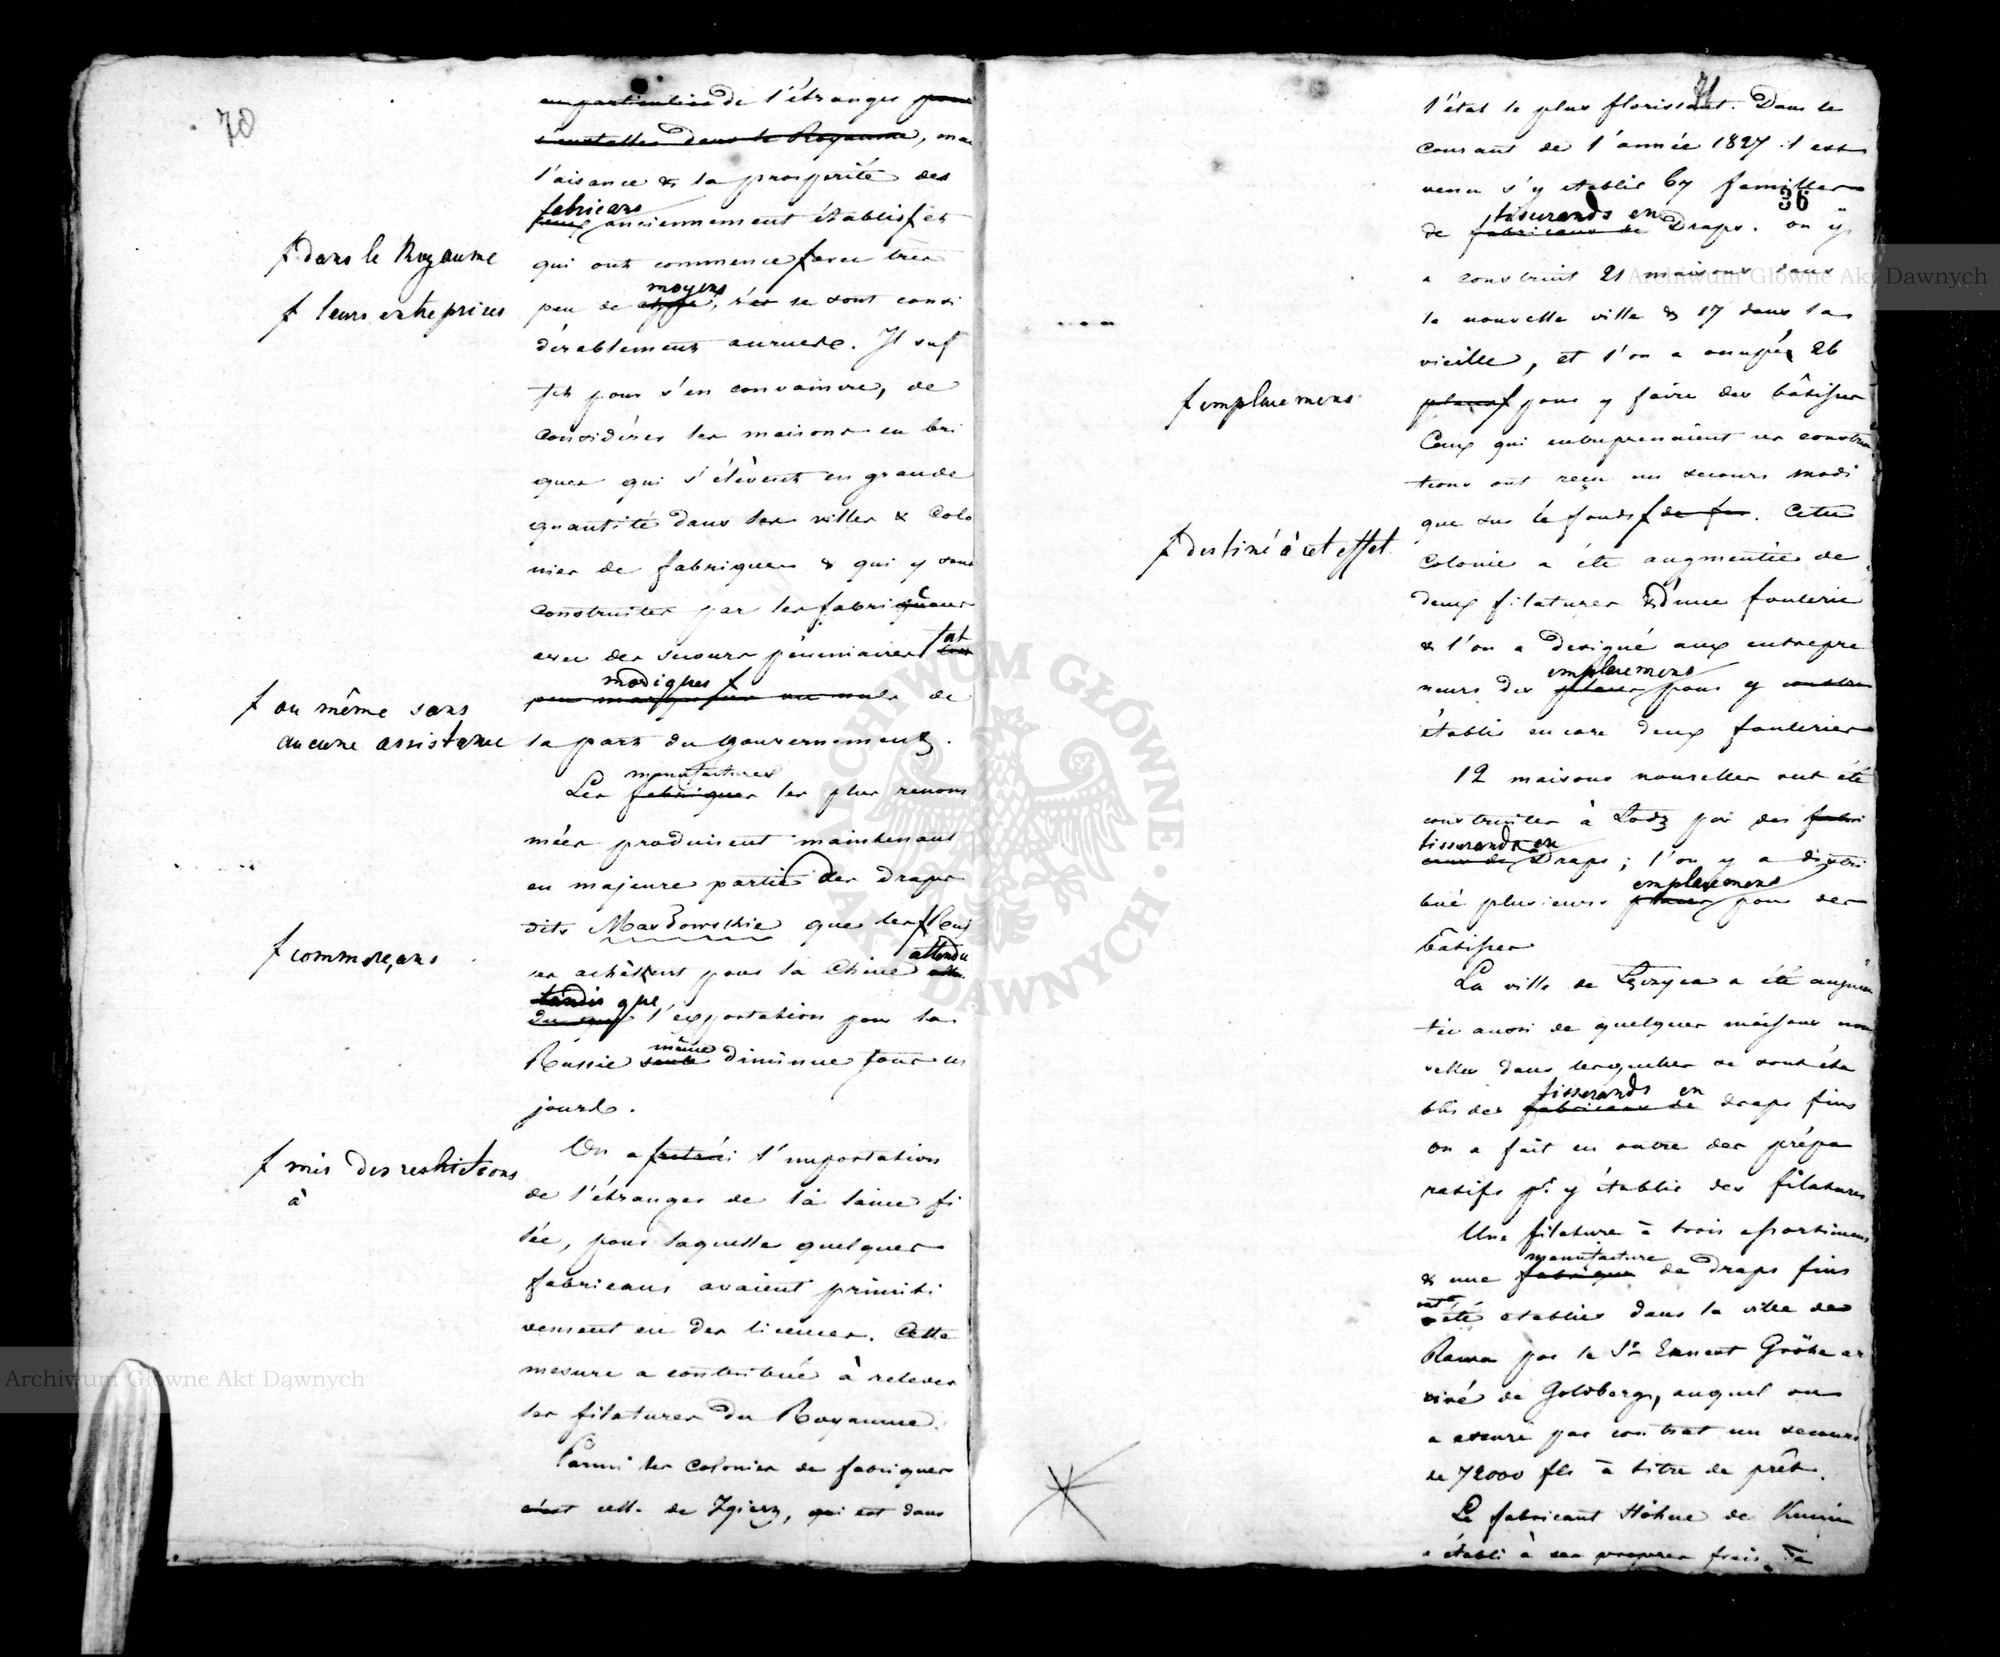 70
en particulier de l'étranger pour
s'installer dans le Royaume, mais
l'aisance & la prosperité des
fabricans
ceux anciennement établis ƒ et
ƒ dans le Royaume
qui ont commencé ƒ avec très
ƒ leurs entreprises
moyens
peu de , s'est se sont consi
dérablement accrues. Il suf
fit pour s'en convaincre, de
considérer les maisons en bri
ques qui s'élèvent en grande
quantité dans les villes & Colo
nies de fabriques & qui y sont
construites par les fabricans
avec des secours pécuniaires fort
modiques ƒ
peu ou nuls de
ƒ ou même sans
aucune assistance
la part du Gouvernement.
manufactures
Les fabriques les plus renom
mées produisent maintenant
en majeure partie des draps
dits Masłowskie que les ƒ Rus
ƒ commerçans
ses achètent pour la Chine attendu
tandis que
du que l'exportation pour la
même
Russie seule diminue tous les
jours.
On a ƒ retréci l'importation
ƒ mis des restrictions
à
de l'étranger de la laine fi
lée, pour laquelle quelques
fabricans avaient primiti
vement eu des licences. Cette
mesure a contribué à relever
les filatures du Royaume.
Parmi les Colonies de fabriques
c'est celle de Zgierz, qui est dans
71
36
l'état le plus florissant. Dans le
courant de l'année 1827 il est
venu s'y etablir 67 familles
tisserands en
de fabricans de Draps. on y
a construit 21 maisons dans
la nouvelle ville & 17 dans la
vieille, et l'on a occupé 26
ƒ emplacemens
places ƒ pour y faire des bâtisses
Ceux qui entreprenaient ces construc
tions ont reçu un secours modi
que sur le fonds ƒ de fer. Cette
ƒ destiné à cet effet
Colonie a été augmentée de
deux filatures & d'une foulerie
& l'on a designé aux entrepre
emplacemens
neurs des places pour y constru
établir encore deux fouleries
12 maisons nouvelles ont été
construites à Lodz par des fabri
tisserands en
cans de Draps; l'on y a distri
emplacemens
bué plusieurs places pour des
bâtisses
La ville de Łęczyca a été augmen
tée aussi de quelques maisons nou
velles dans lesquelles se sont éta
tisserands en
blis des fabricans de draps fins
on a fait en outre des prépa
ratifs pr. y établir des filatures
Une filature à trois assortimens
manufacture
& une fabrique de draps fins
ont
été etablies dans la ville de
Rawa par le Sr Ernest Gröhe ar
rivé de Goldberg, auquel on
a assuré par contrat un secours
de 72000 fls à titre de prêt.
Le fabricant Höhne de Konin
a établi à ses propres frais, à
Archiwum Główne Akt Dawnych
Archiwum Główne Akt Dawnych
ARCHIWUM GŁÓWNE AKT DAWNYCH